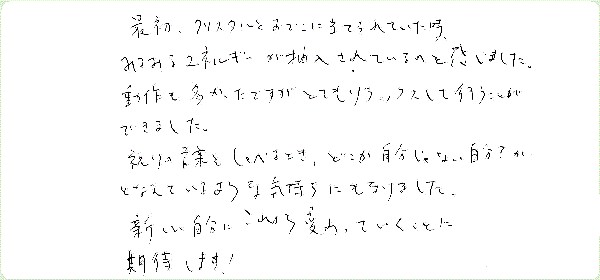 最初、クリスタルをおでこに当てられていた時、
みるみるエネルギーが挿入されているのを感じました。
動作も多かったですがとてもリラックスして行うことが
できました。
祝りの言葉をしゃべるとき、どこか自分じゃない自分?が
となえているような気持ちにもなりました。
新しい自分にこれから変わっていくことに
期待します!